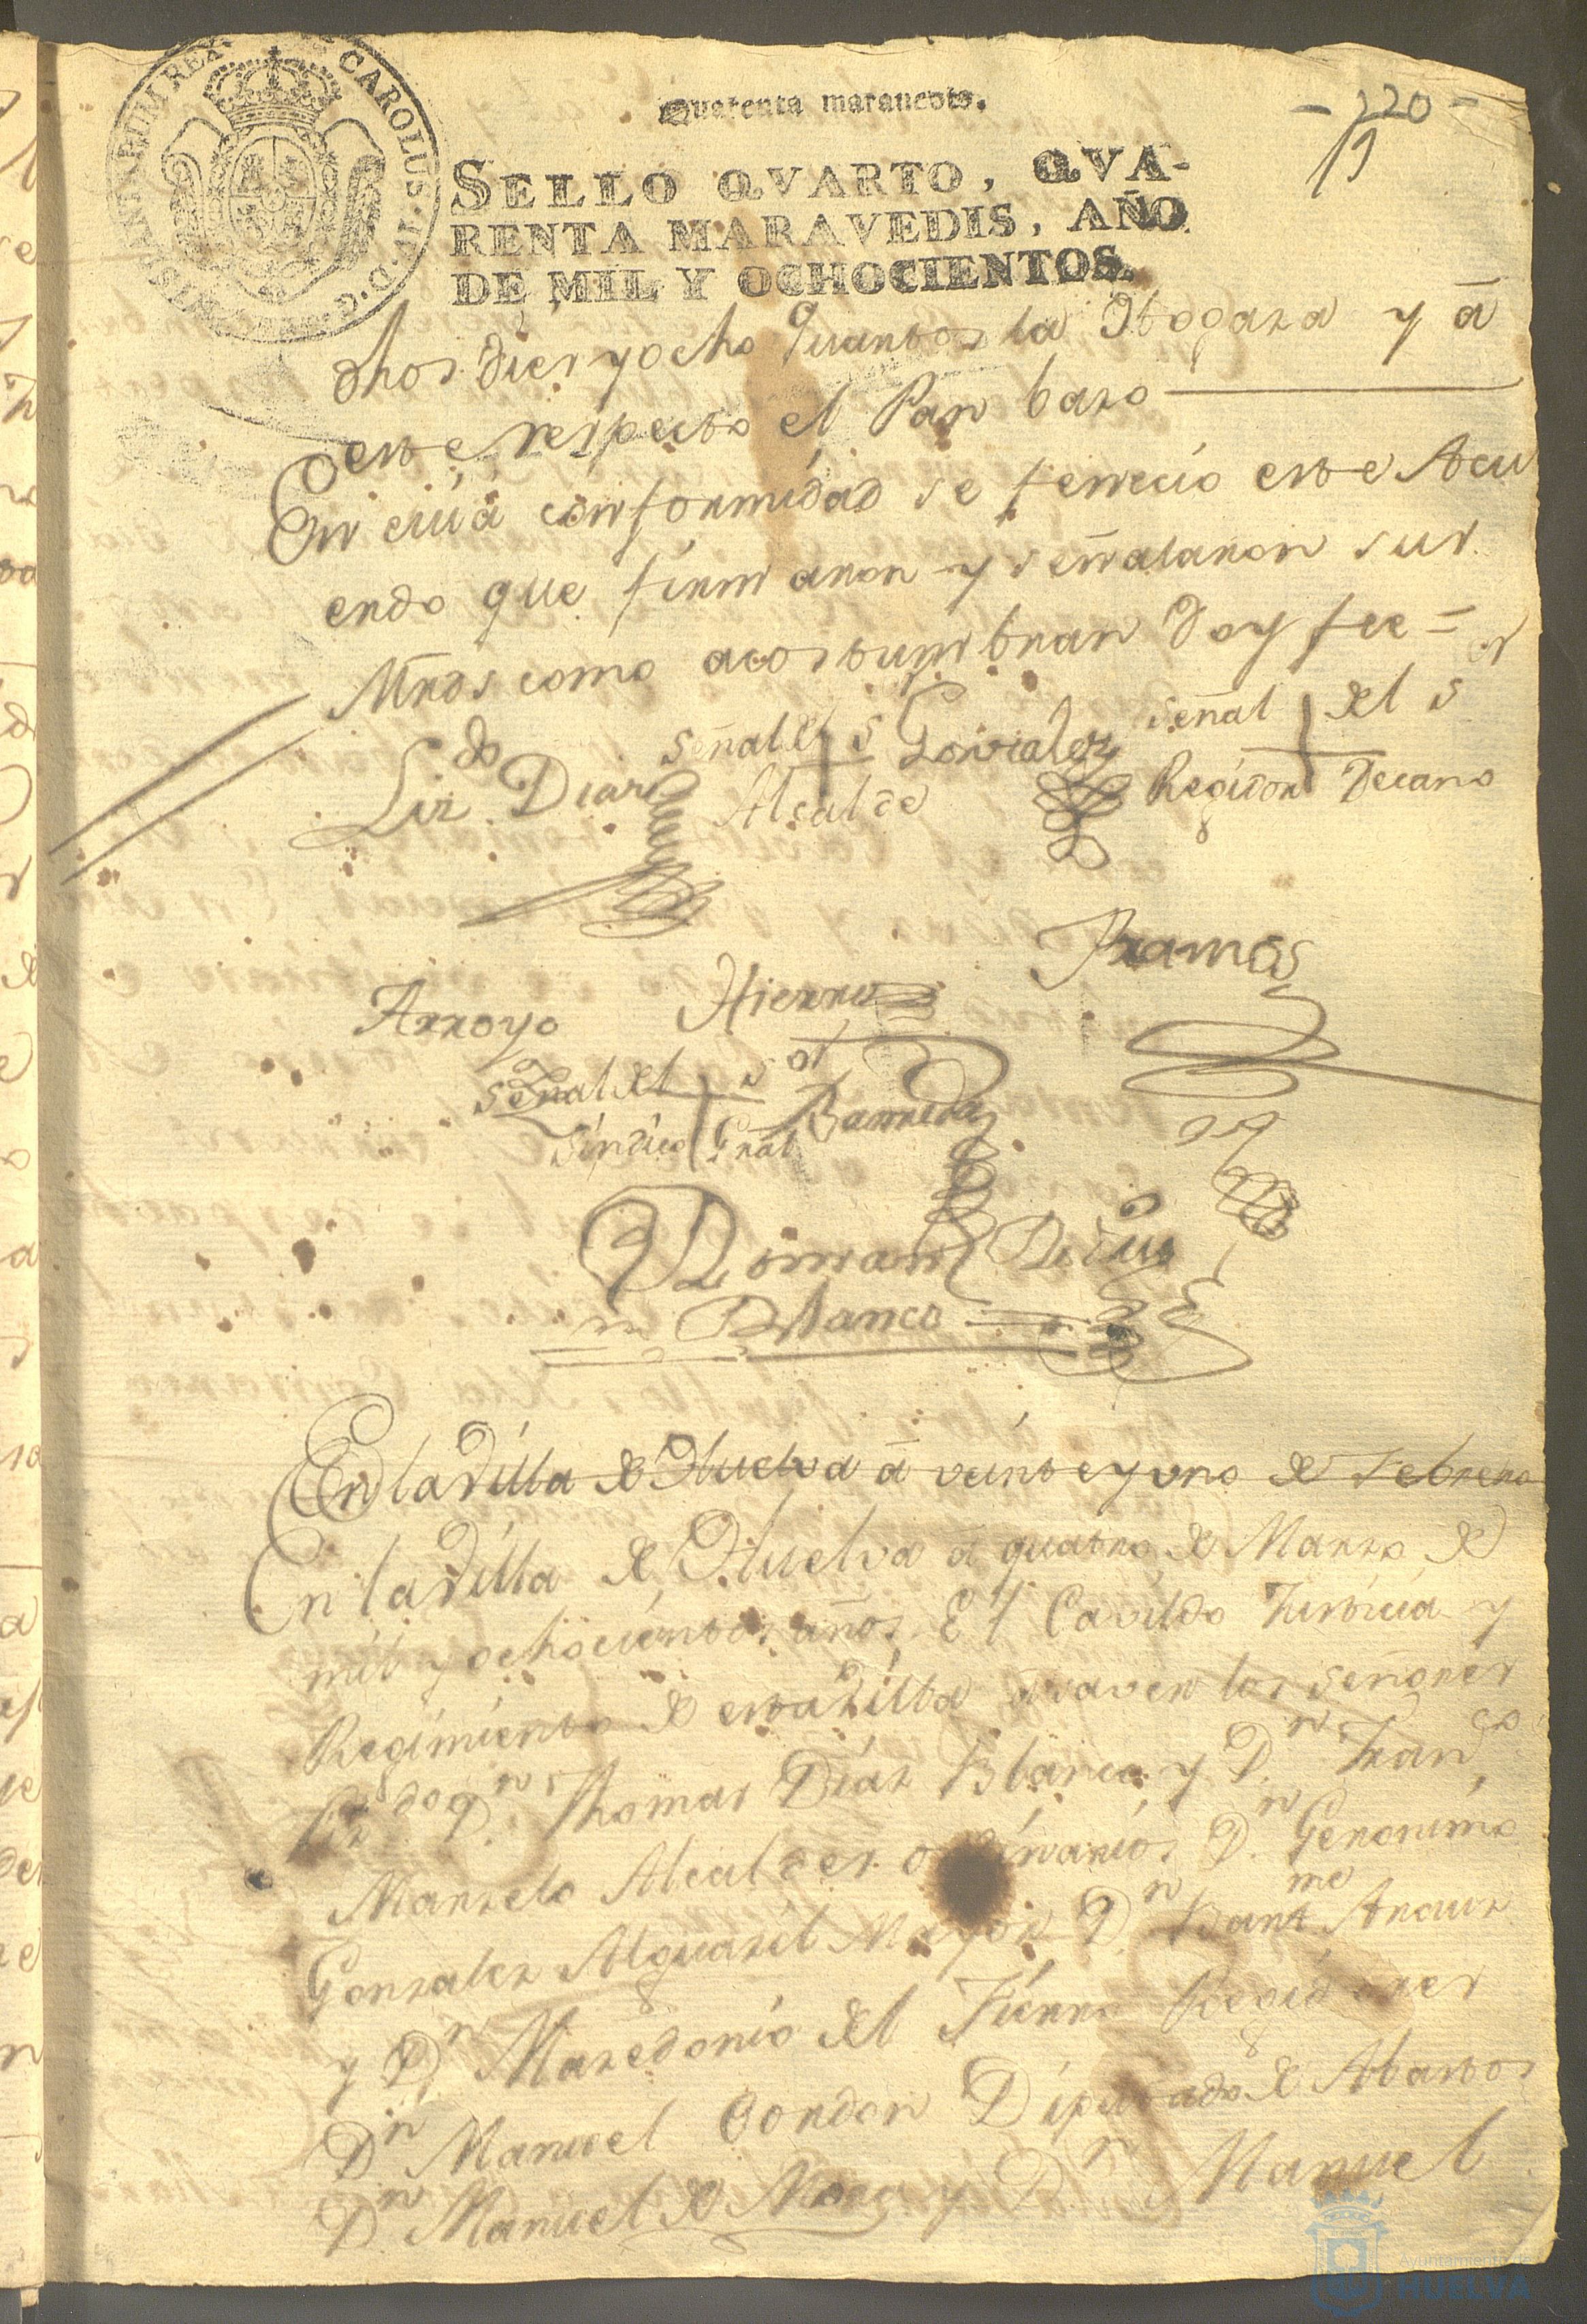 CAROLUS IV D.G. HISPANIARUM REX
Quarenta marauedis.
- 220 -
SELLO QVARTO, QVA-
RENTA MARAVEDIS, AÑO
DE MIL Y OCHOCIENTOS.
dhos diez y ocho quartos la Ogaza y â
este respecto el Pan bazo
En cuia conformidad se fenecio este Acu
erdo que firmaron y señalaron sus
Mrds como acostumbran Doy fee =
Lizdo Diaz
señal del sor Gonzalez
Alcalde
señal del sor
Regidor Decano
Ramos
Arroyo
Hierro
señal del sor
Sindico Gral
Barreda
Blanco
En la Villa de Huelva â veinte y uno de Febrero
En la Villa de Huelva â quatro de Marzo de
mil y ochocientos años El Cavildo Justicia y
Regimiento de esta Villa â saver los señores
Lizdo Dn Thomas Diaz Blanco y Dn Franco
Marzelo Alcaldes ordinarios Dn Geronimo
Gonzalez Alguazil Mayor Dn Barme Arauz
y Dn Mazedonio del Fierro Regidores
Dn Manuel Gordon Diputado de Abastos
Dn Manuel de Mora y Dn Manuel
Ayuntamiento de
HUELVA